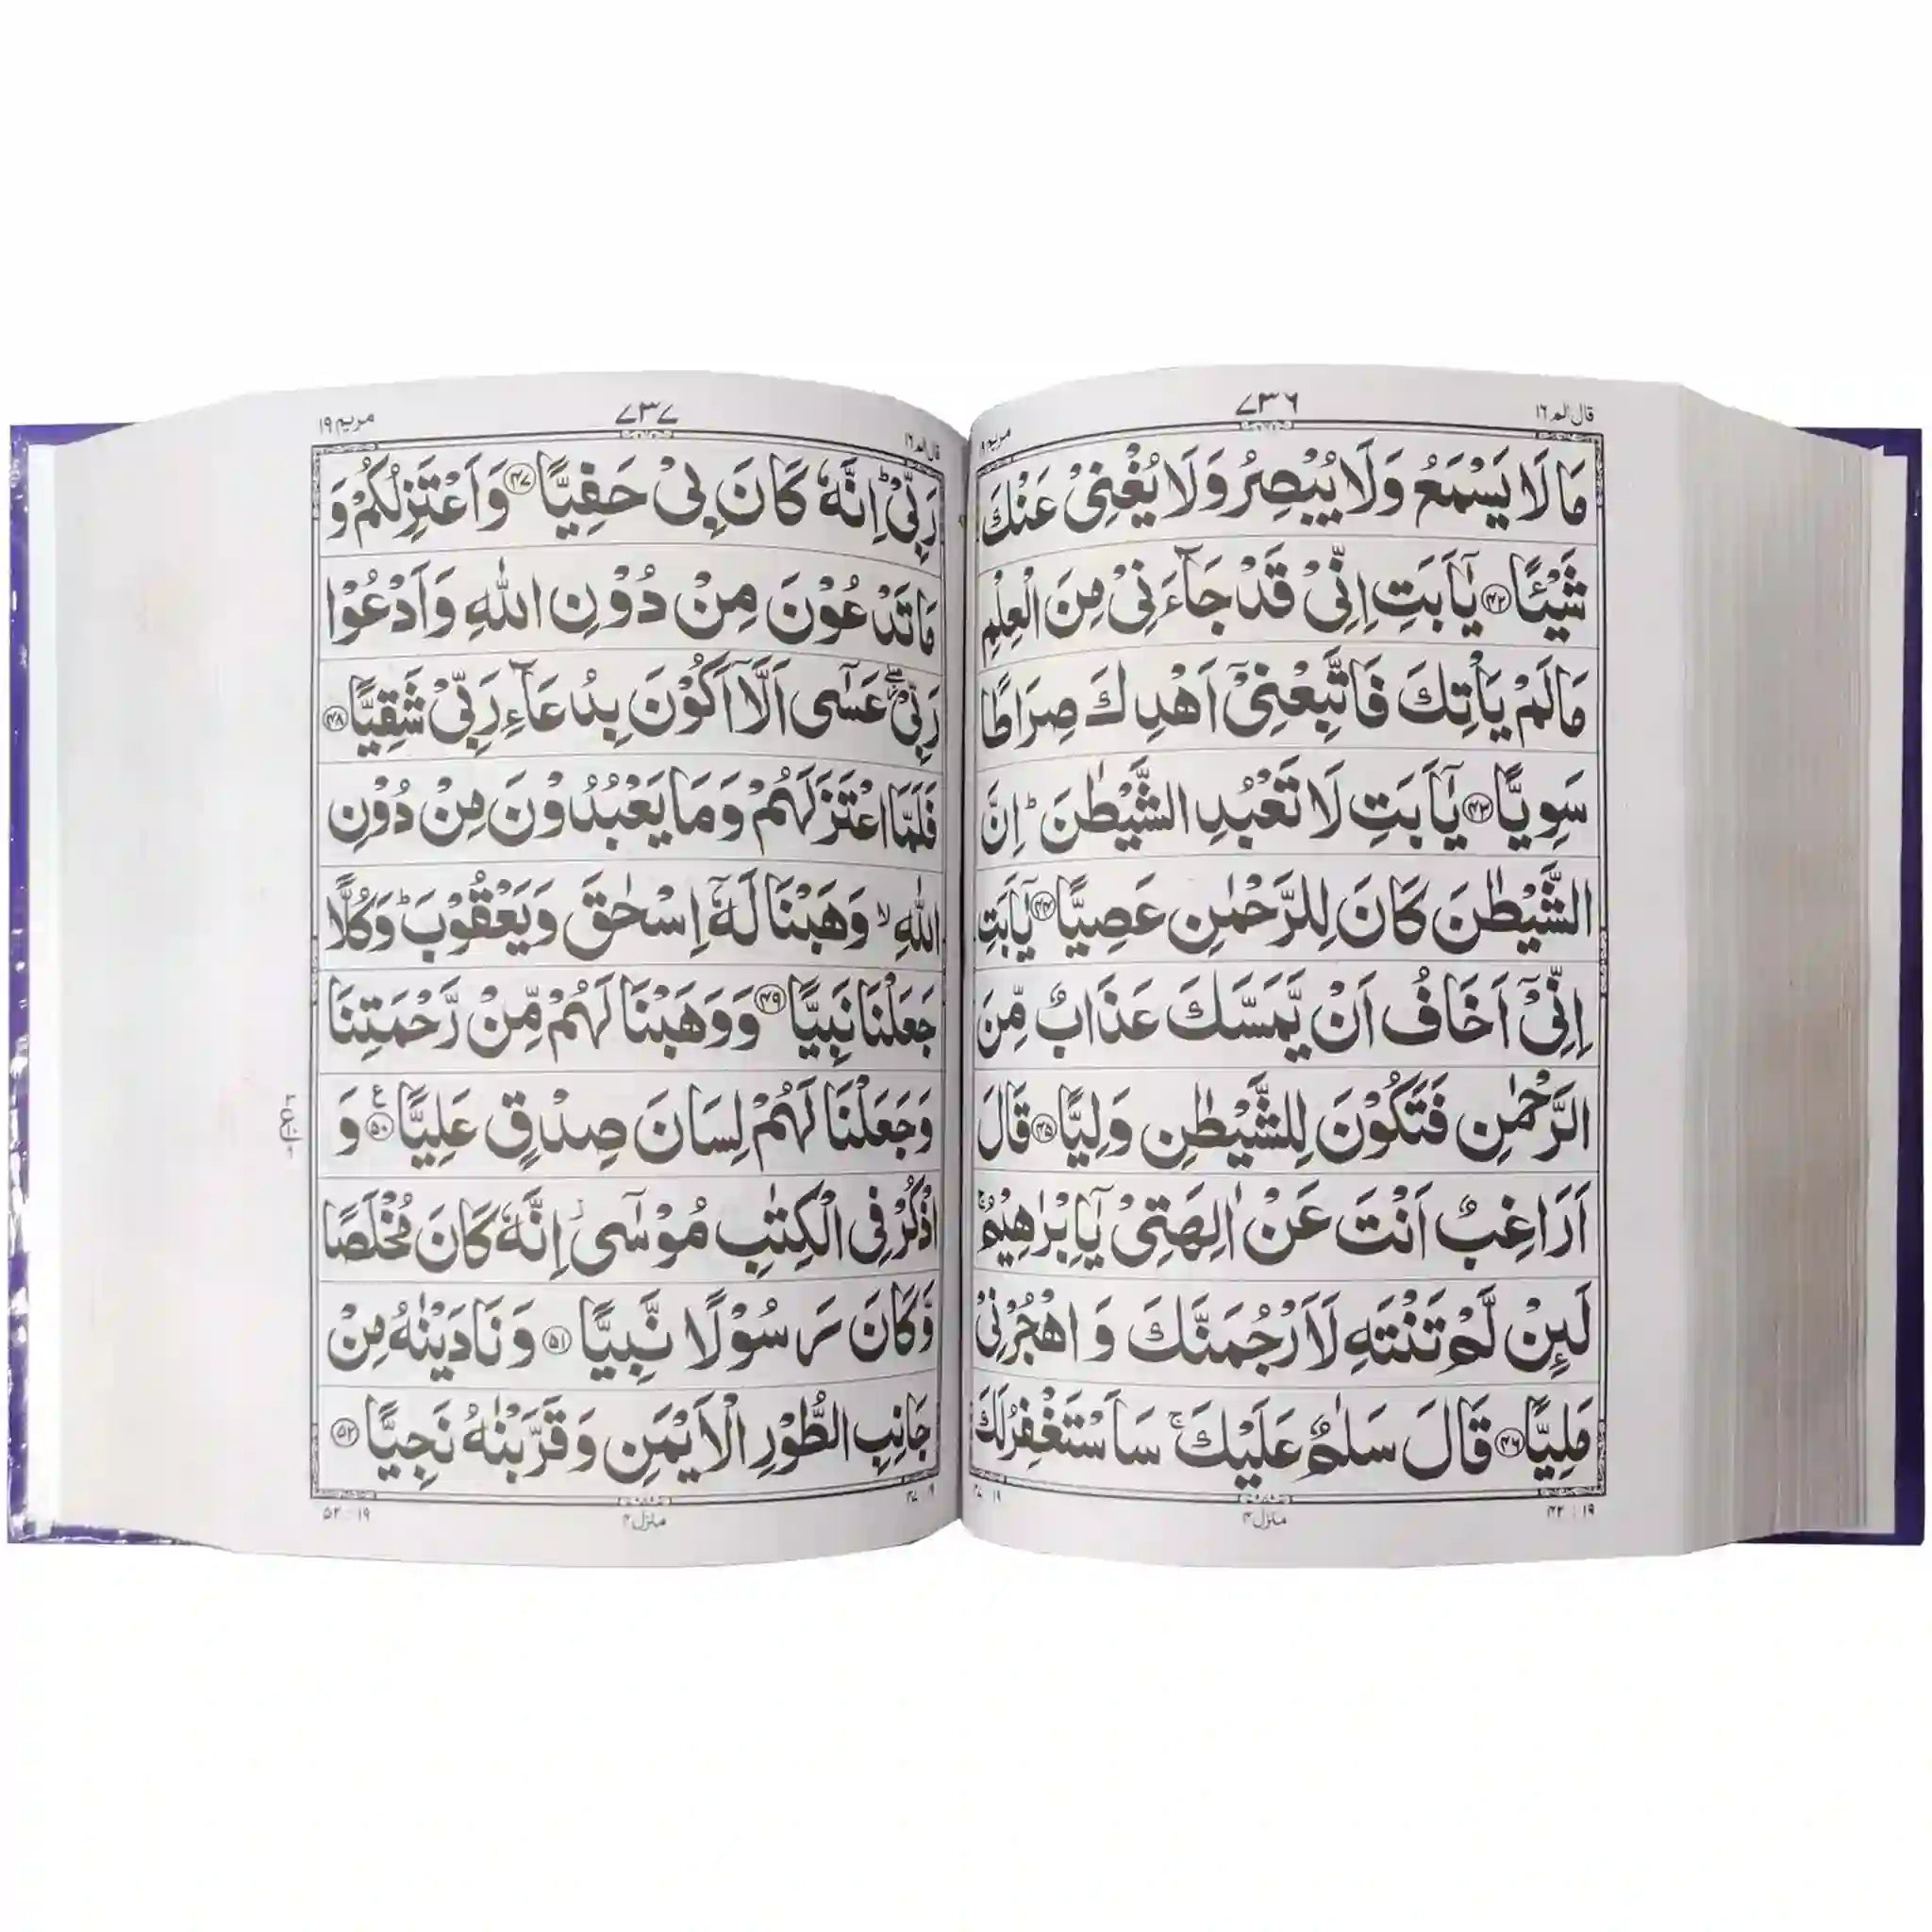 قال الم ١٦
٧٣٦
مريم ١٩
مَا لَا يَسْمَعُ وَلَا يُبْصِرُ وَلَا يُغْنِىْ عَنْكَ
شَيْـًٔا ﴿۴۲﴾ يٰۤاَبَتِ اِنِّىْ قَدْ جَآءَنِىْ مِنَ الْعِلْمِ
مَا لَمْ يَاْتِكَ فَاتَّبِعْنِىْۤ اَهْدِكَ صِرَاطًا
سَوِيًّا ﴿۴۳﴾ يٰۤاَبَتِ لَا تَعْبُدِ الشَّيْطٰنَ ؕ اِنَّ
الشَّيْطٰنَ كَانَ لِلرَّحْمٰنِ عَصِيًّا ﴿۴۴﴾ يٰۤاَبَتِ
اِنِّىْۤ اَخَافُ اَنْ يَّمَسَّكَ عَذَابٌ مِّنَ
الرَّحْمٰنِ فَتَكُوْنَ لِلشَّيْطٰنِ وَلِيًّا ﴿۴۵﴾ قَالَ
اَرَاغِبٌ اَنْتَ عَنْ اٰلِهَتِىْ يٰۤاِبْرٰهِيْمُ ۚ
لَئِنْ لَّمْ تَنْتَهِ لَاَرْجُمَنَّكَ وَاهْجُرْنِىْ
مَلِيًّا ﴿۴۶﴾ قَالَ سَلٰمٌ عَلَيْكَ ۚ سَاَسْتَغْفِرُ لَكَ
۴۲ : ١٩
منزل ۴
۴۷ : ١٩
قال الم ١٦
٧٣٧
مريم ١٩
رَبِّىْ ؕ اِنَّهٗ كَانَ بِىْ حَفِيًّا ﴿۴۷﴾ وَاَعْتَزِلُكُمْ وَ
مَا تَدْعُوْنَ مِنْ دُوْنِ اللّٰهِ وَاَدْعُوْا
رَبِّىْ ۖ عَسٰۤى اَلَّاۤ اَكُوْنَ بِدُعَآءِ رَبِّىْ شَقِيًّا ﴿۴۸﴾
فَلَمَّا اعْتَزَلَهُمْ وَمَا يَعْبُدُوْنَ مِنْ دُوْنِ
اللّٰهِ ۙ وَهَبْنَا لَهٗۤ اِسْحٰقَ وَيَعْقُوْبَ ؕ وَكُلًّا
جَعَلْنَا نَبِيًّا ﴿۴۹﴾ وَوَهَبْنَا لَهُمْ مِّنْ رَّحْمَتِنَا
وَجَعَلْنَا لَهُمْ لِسَانَ صِدْقٍ عَلِيًّا ﴿۵۰﴾ ع وَ
اذْكُرْ فِى الْكِتٰبِ مُوْسٰۤى ؗ اِنَّهٗ كَانَ مُخْلَصًا
وَّكَانَ رَسُوْلًا نَّبِيًّا ﴿۵۱﴾ وَنَادَيْنٰهُ مِنْ
جَانِبِ الطُّوْرِ الْاَيْمَنِ وَقَرَّبْنٰهُ نَجِيًّا ﴿۵۲﴾
۴۷ : ١٩
منزل ۴
۵۲ : ١٩